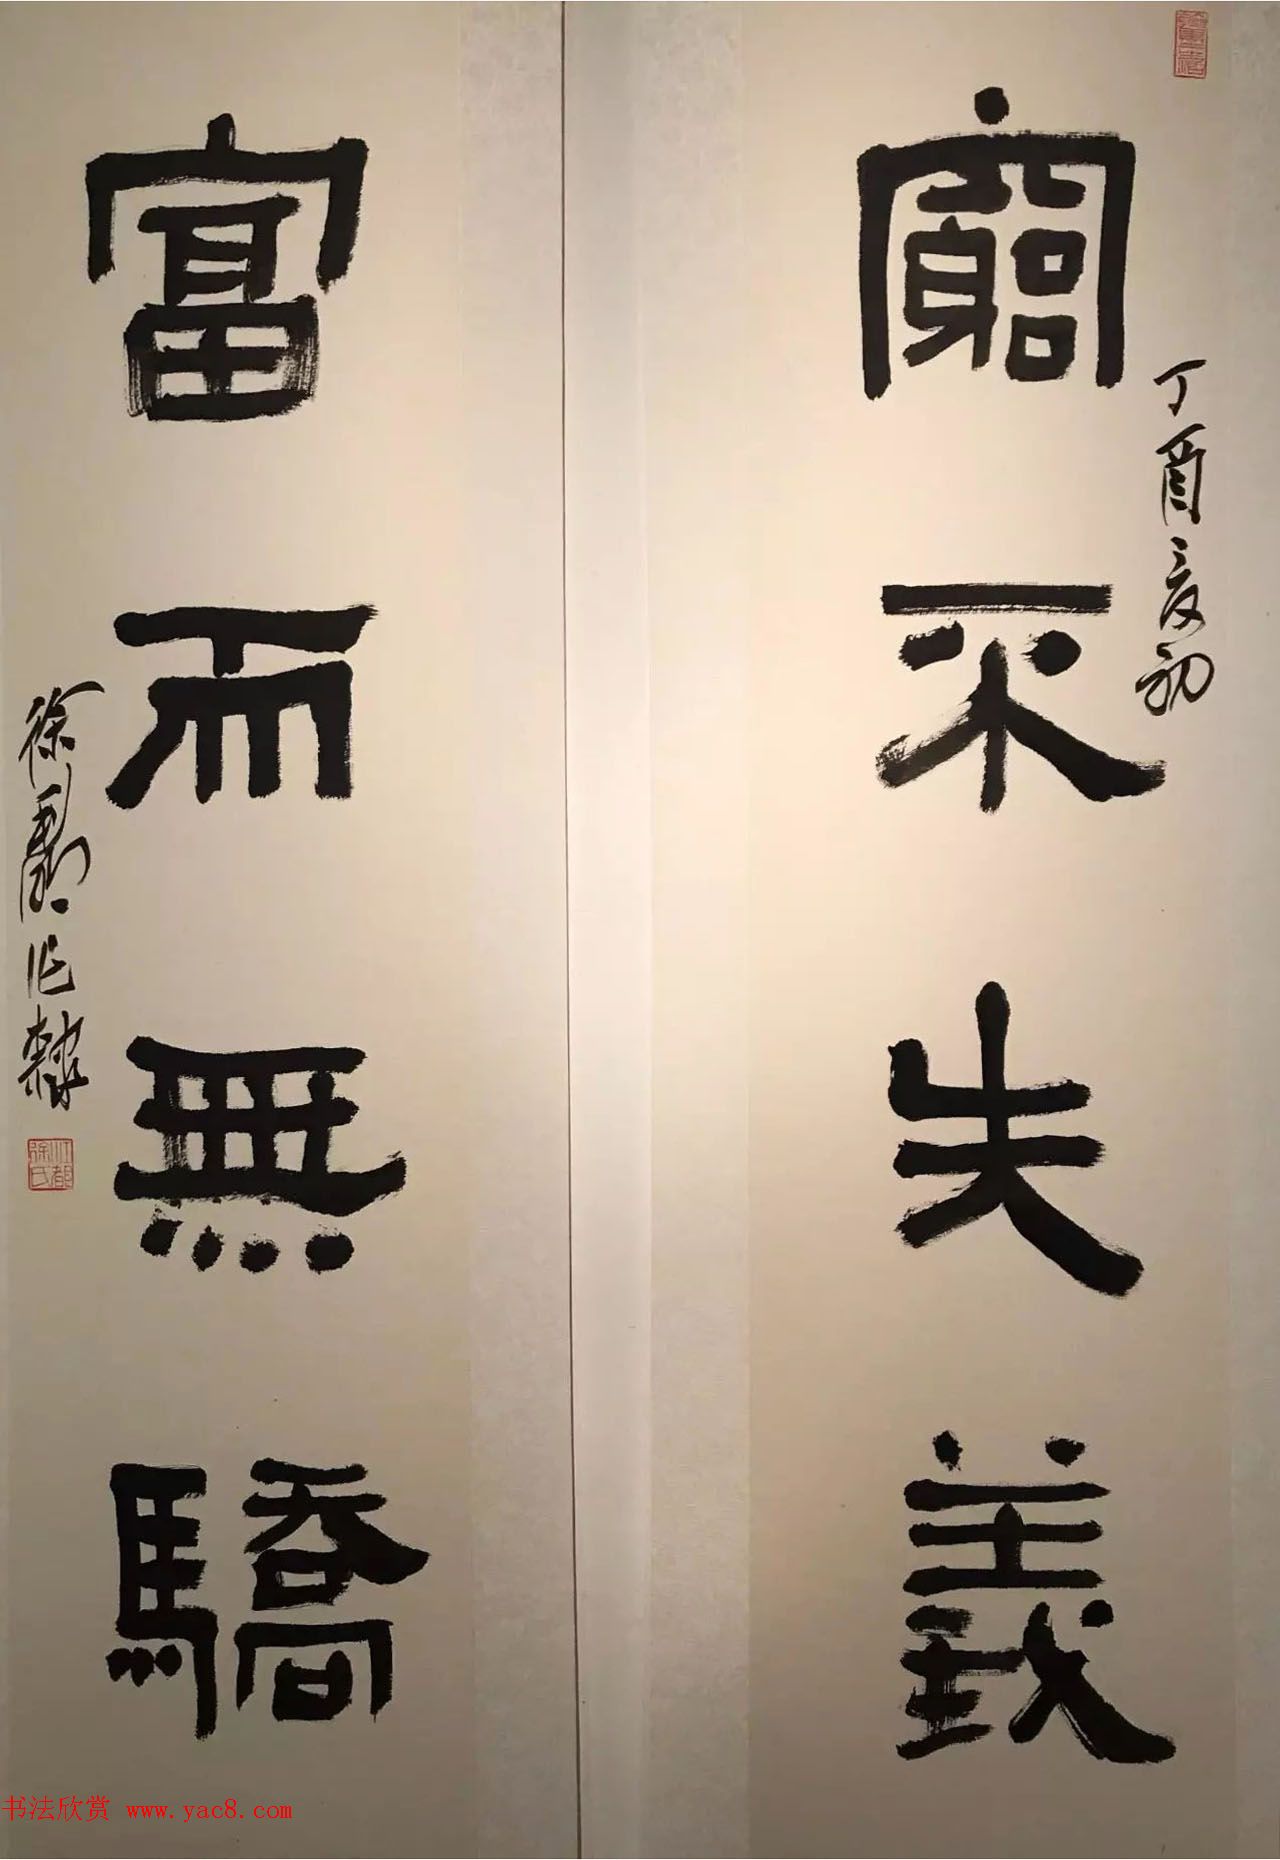 窮不失義
丁酉夏初
富而無驕
徐 作隸
江都徐氏
书法欣赏 www.yac8.com